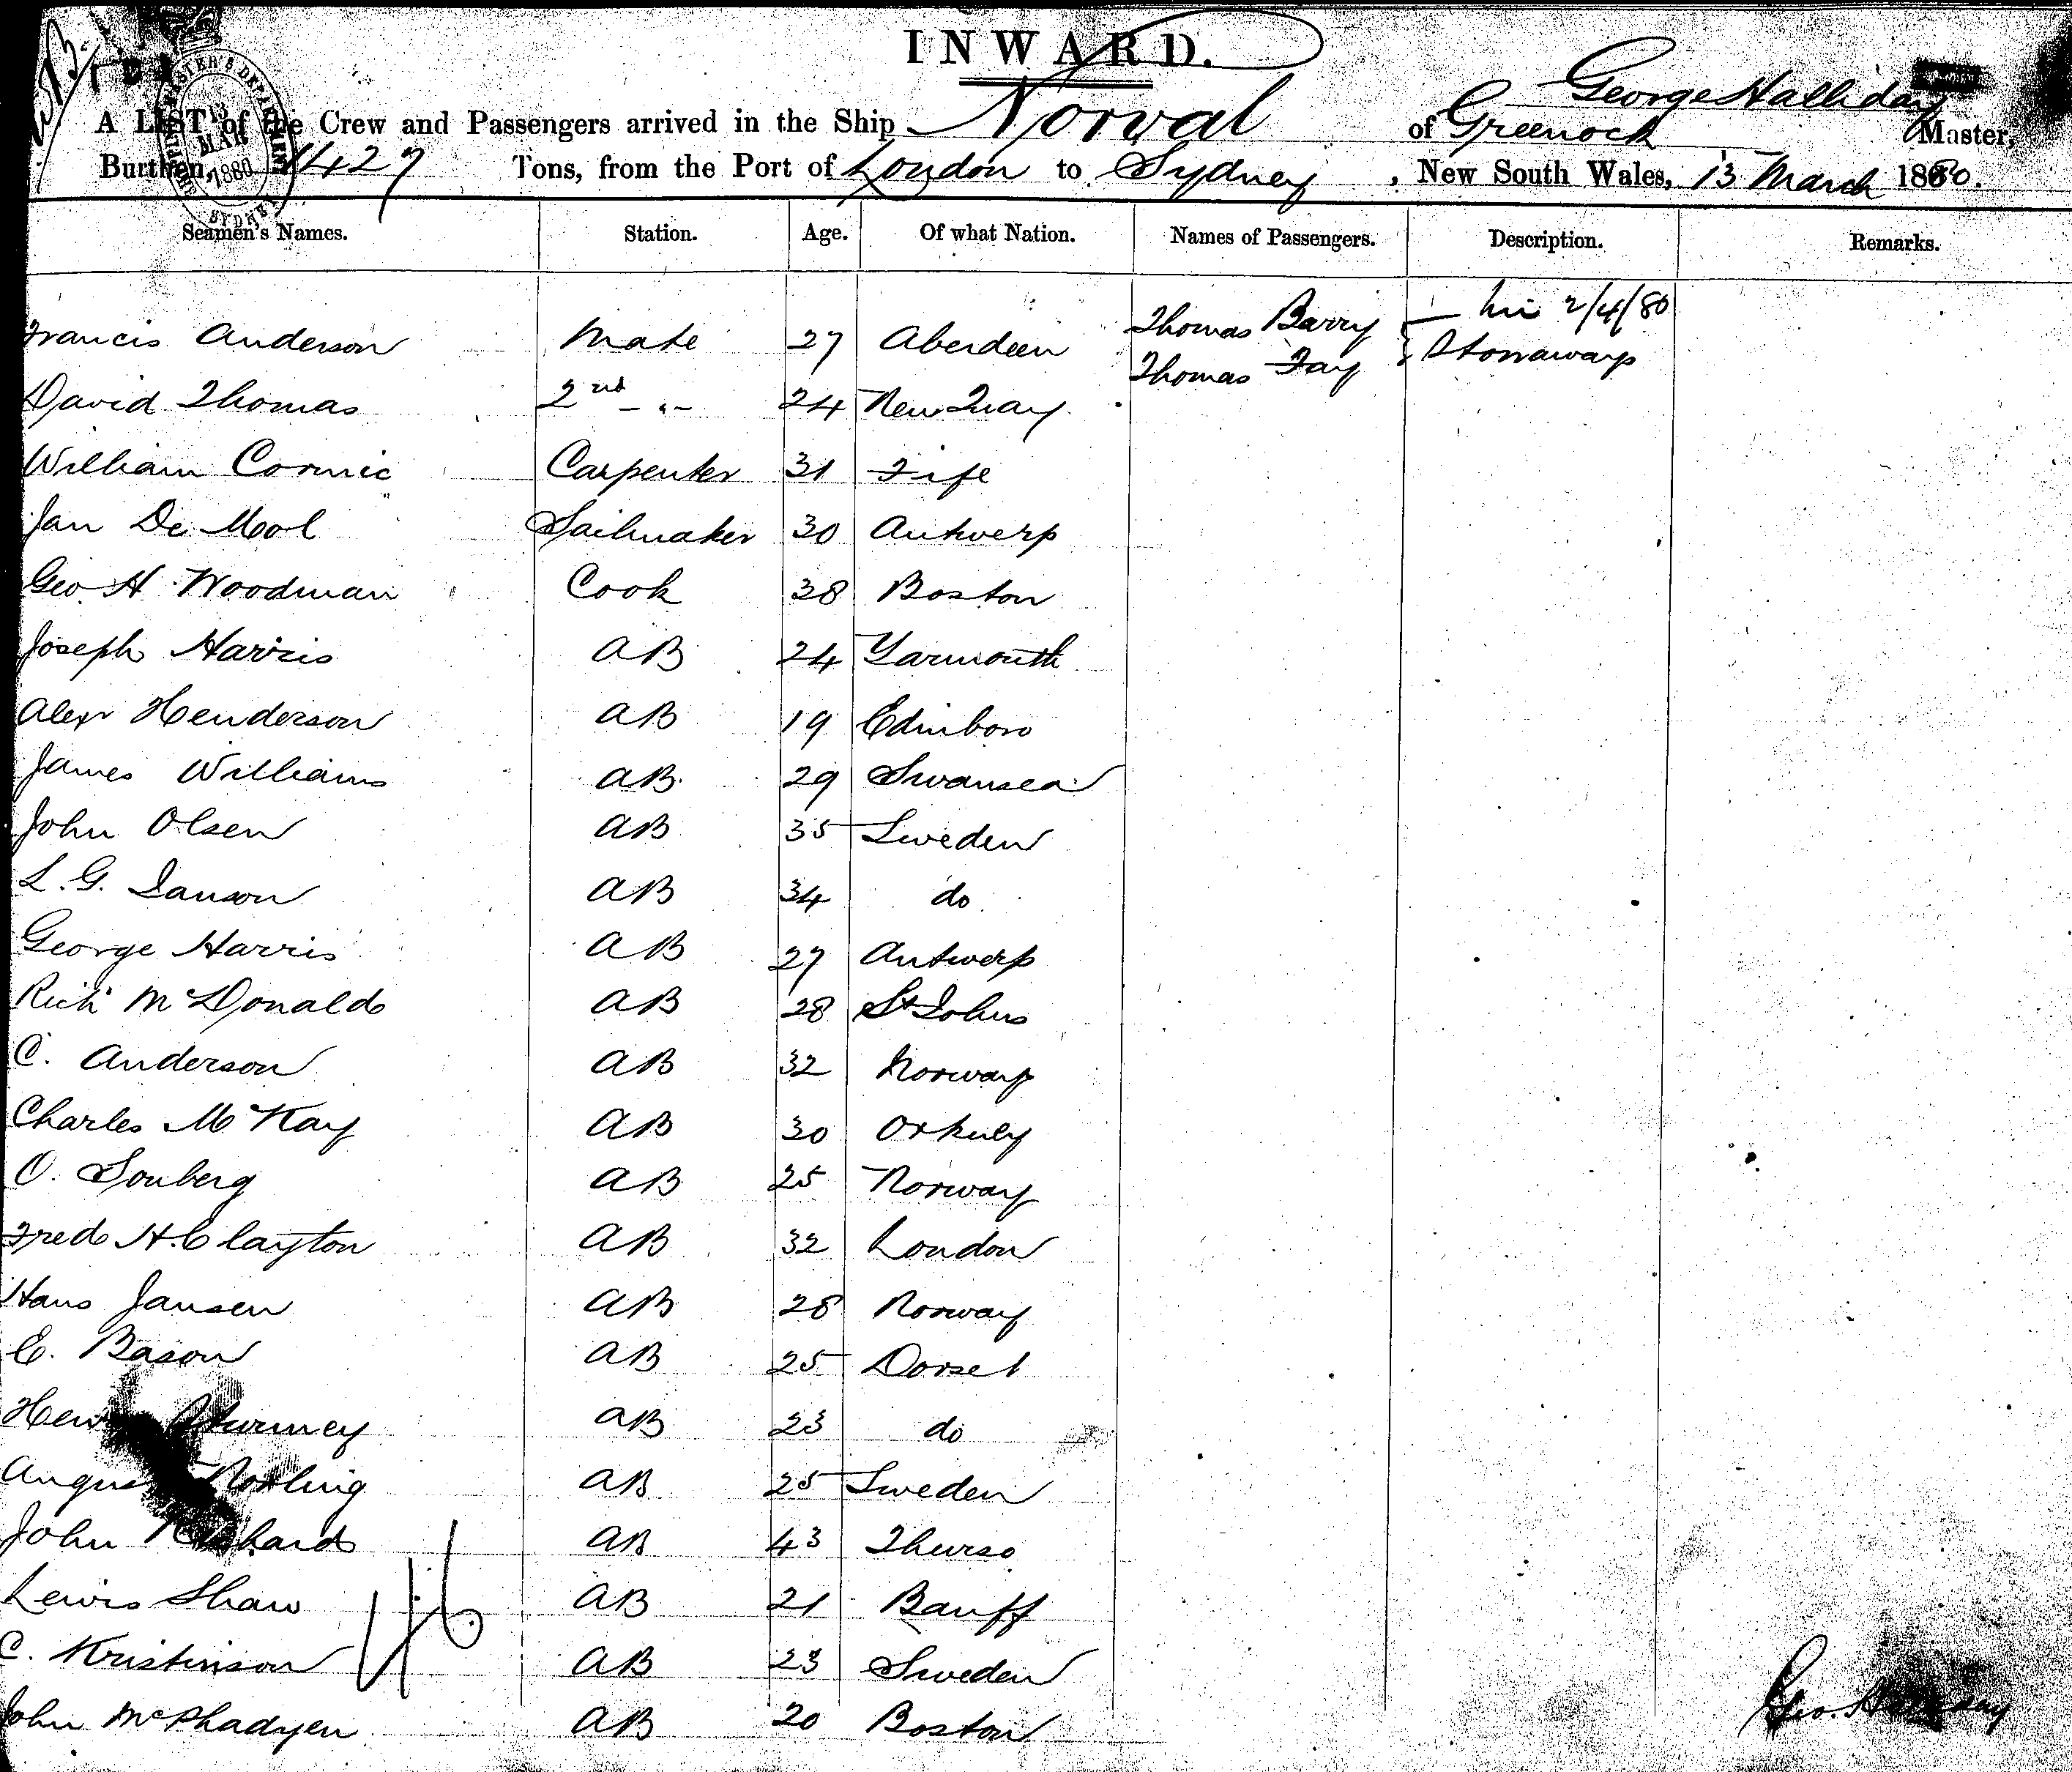 INWARD.
George Halliday
A LIST of the Crew and Passengers arrived in the Ship Norval of Greenock Master,
Burthen, 1427 Tons, from the Port of London to Sydney, New South Wales, 13 March 1880.
MAR
1880
SYDNEY
Seamen's Names. Station. Age. Of what Nation. Names of Passengers. Description. Remarks.
Francis Anderson Mate 27 Aberdeen Thomas Barry 2/4/80
Thomas Fay Stowaways
David Thomas 2nd -"- 24 New Quay
William Cormic Carpenter 31 Fife
Jan De Mool Sailmaker 30 Antwerp
Geo. H Woodman Cook 38 Boston
Joseph Harris AB 24 Yarmouth
Alexr Henderson AB 19 Edinboro
James Williams AB 29 Swansea
John Olsen AB 35 Sweden
L. G. Ianson AB 34 do
George Harris AB 27 Antwerp
Richd McDonald AB 28 St Johns
C. Anderson AB 32 Norway
Charles McKay AB 30 Orkney
O. Sonberg AB 25 Norway
Fred H. Clayton AB 32 London
Hans Jansen AB 28 Norway
E. Bason AB 25 Dorset
Henry Sturmey AB 23 do
August Norling AB 25 Sweden
John Richards AB 43 Thurso
Lewis Shaw AB 21 Banff
46
C. Kristinson AB 23 Sweden
John McPhadyen AB 20 Boston
Geo. Halliday